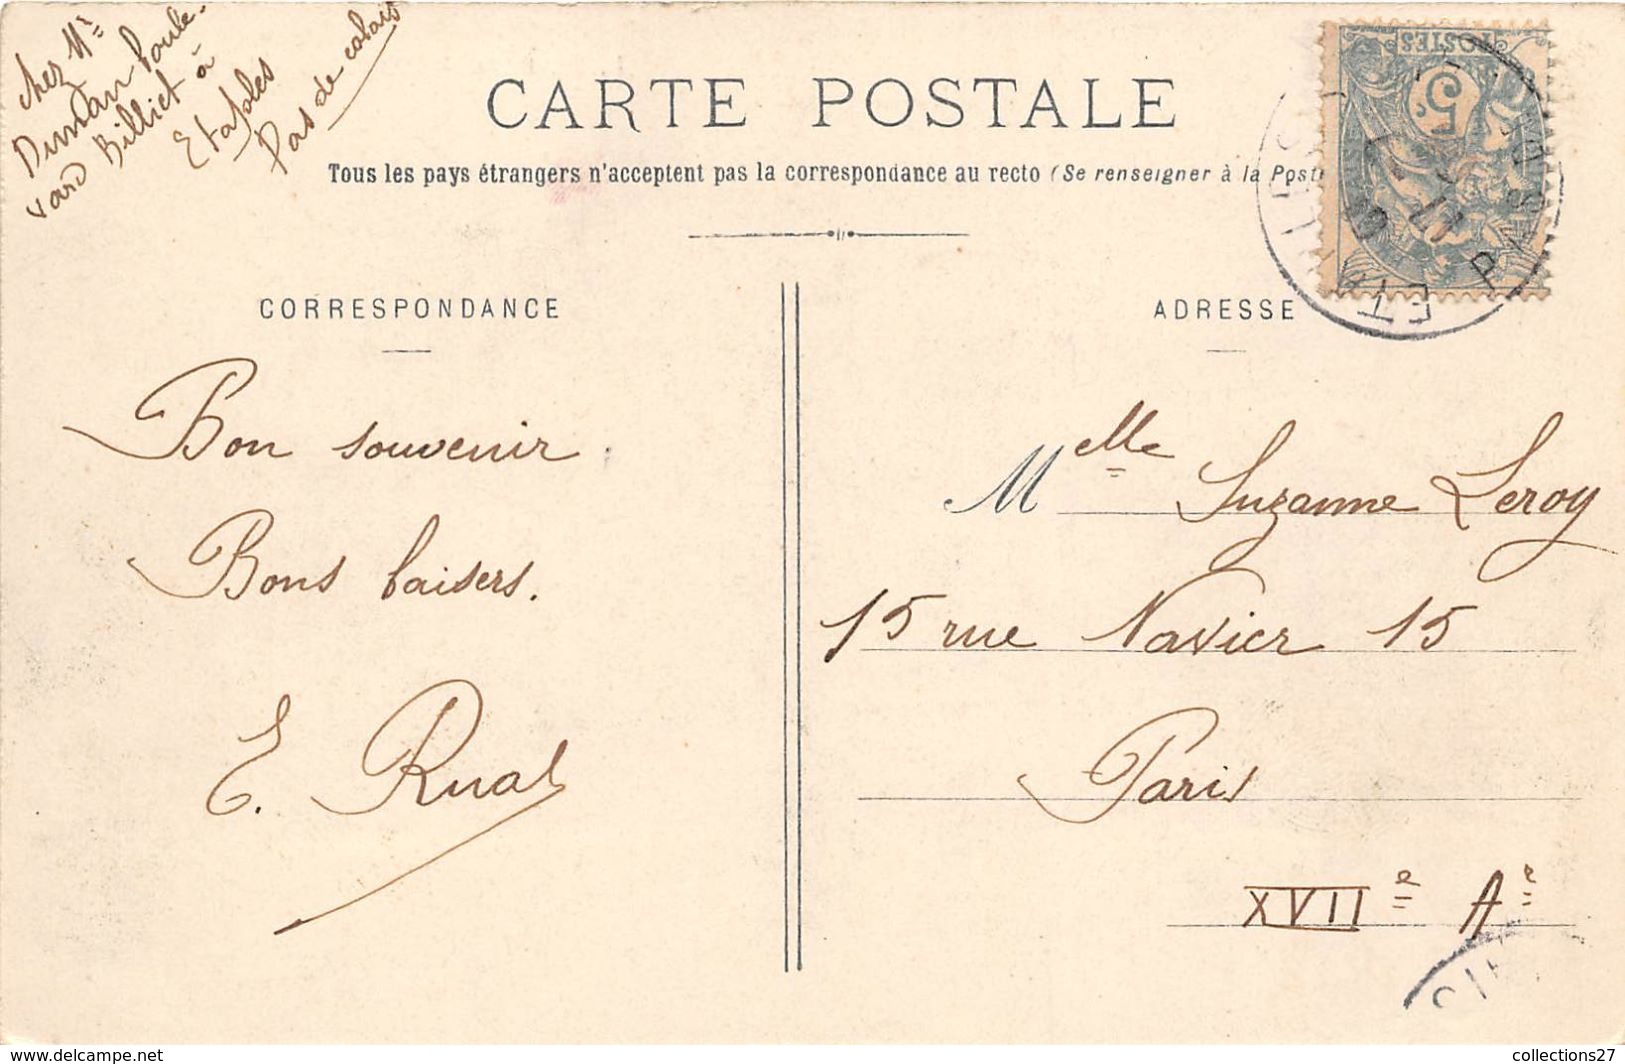 chez Mr
Duman boule-
vard Billiet à
Etaples
Pas de calais
CARTE POSTALE
Tous les pays étrangers n'acceptent pas la correspondance au recto (Se renseigner à la Poste
CORRESPONDANCE
Bon souvenir
Bons baisers.
E. Rual
ADRESSE
POSTES
5c
Melle Suzanne Leroy
15 rue Navier 15
Paris
XVIIe Ar
www.delcampe.net
collections27